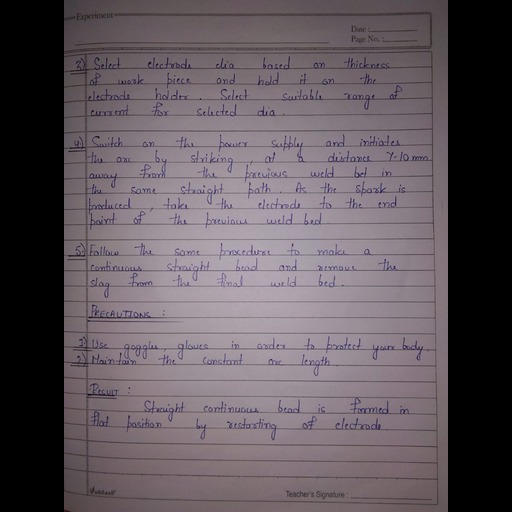 Experiment
Date :
Page No. :
3) Select electrode dia based on thickness
of work piece and hold it on the
electrode holder. Select suitable range of
current for selected dia.
4) Switch on the power supply and initiates
the arc by striking at a distance 7-10 mm
away from the previous weld bet in
the same straight path. As the spark is
produced, take the electrode to the end
point of the previous weld bed
5) Follow the same procedure to make a
continuous straight bead and remove the
slag from the final weld bed.
PRECAUTIONS :
1) Use goggles, gloves in order to protect your body.
2) Maintain the constant arc length.
RESULT :
Straight continuous bead is formed in
flat position by restarting of electrode
Teacher's Signature :